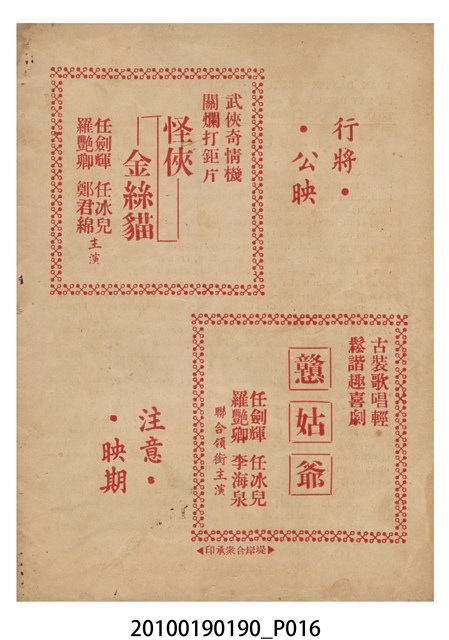 行將·
·公映
武俠奇情機
關爛打鉅片
怪俠
金絲貓
任劍輝 任冰兒
羅艷卿 鄭君綿
主演
古裝歌唱輕
鬆諧趣喜劇
戇姑爺
任劍輝 任冰兒
羅艷卿 李海泉
聯合領銜主演
注意·
·映期
▶堤岸合衆承印◀
20100190190_P016